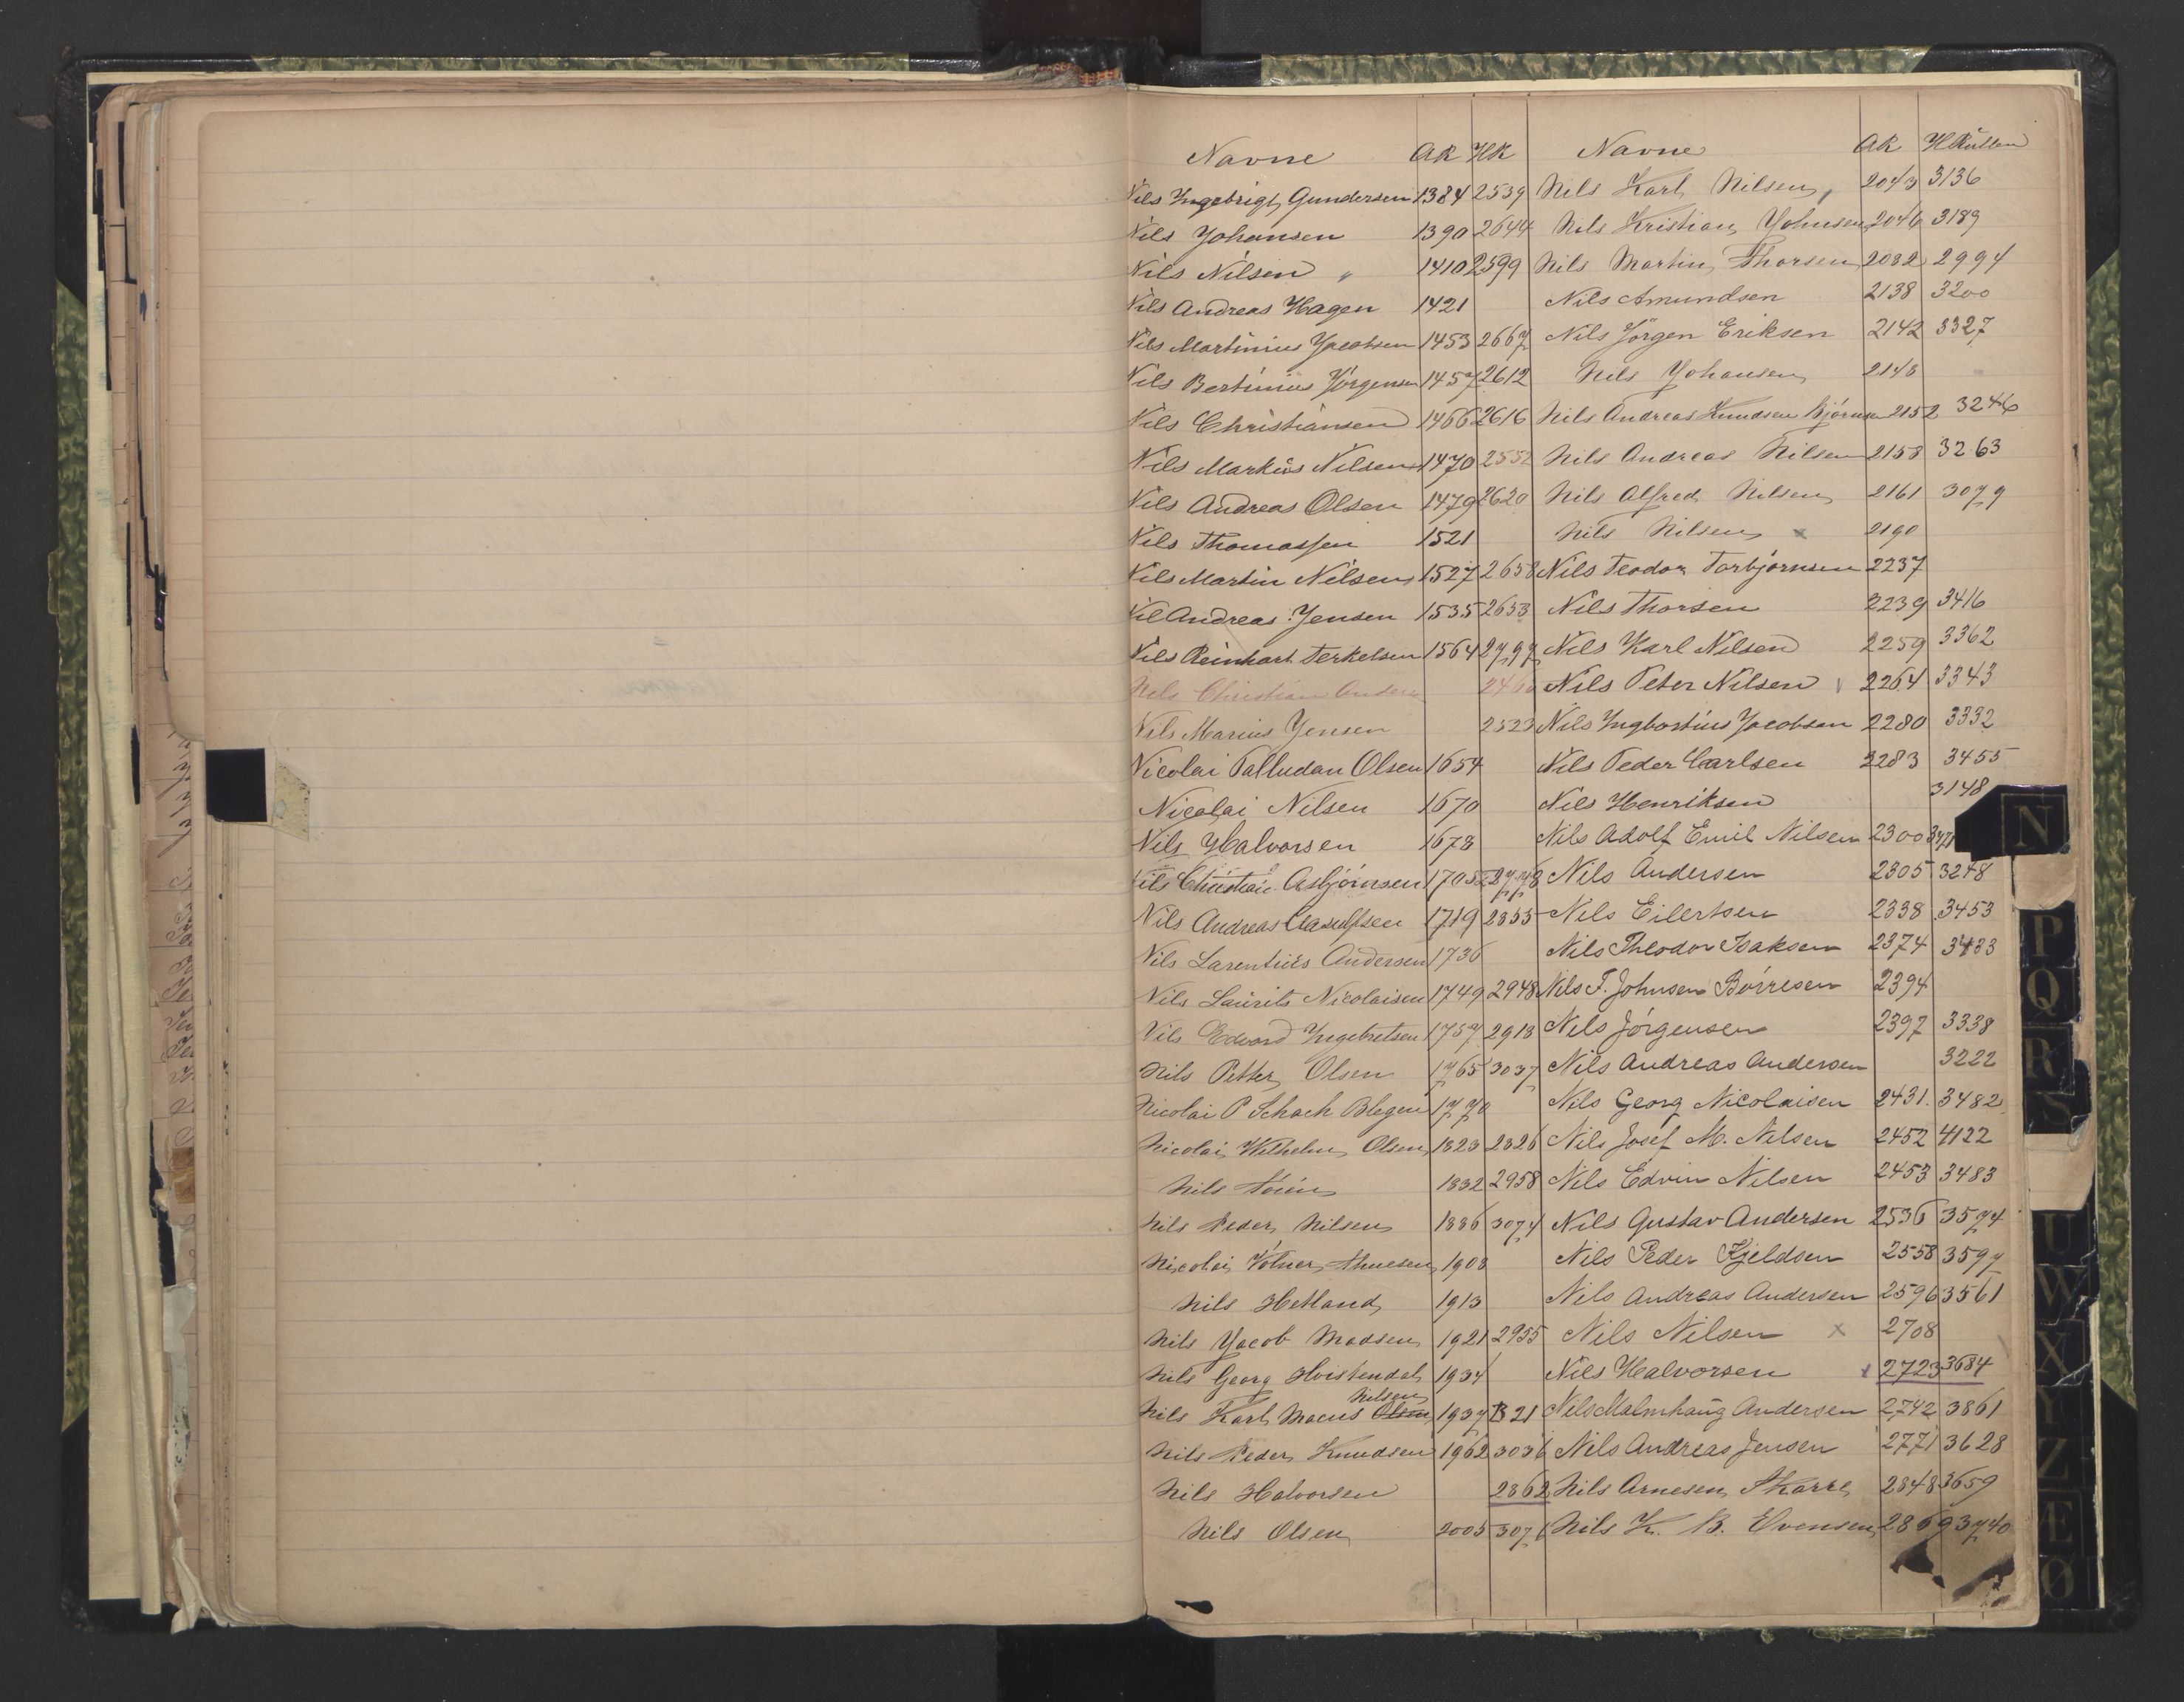 Navne AR HR
Nils Ingebrigt Gundersen 1384 2539
Nils Johansen 1390 2644
Nils Nilsen " 1410 2599
Nils Andreas Hagen 1421
Nils Martinius Jacobsen 1453 2667
Nils Bertinius Jörgensen 1457 2612
Nils Christiansen 1466 2616
Nils Markus Nilsen 1470 2552
Nils Andreas Olsen 1479 2620
Nils Thomassen 1521
Nils Martin Nilsen 1527 2658
Nil Andreas Jensen 1535 2653
Nils Reinhart Terkelsen 1564 2797
Nils Christian
Nils Marius Jensen 2523
Nicolai Palludan Olsen 1654
Nicolai Nilsen 1670
Nils Halvorsen 1678
Nils Asbjörnsen 1705 2778
Nils Andreas Aasulfsen 1719 2855
Nils Larentius Andersen 1736
Nils Laurits Nicolaisen 1749 2948
Nils Edvard Ingebretsen 1757 2918
Nils Petter Olsen 1765 3037
Nicolai P Schach Blegen 1770
Nicolai Wilhelm Olsen 1823 2826
Nils 1832 2958
Nils Peder Nilsen 1886 3074
Nicolai Thuesen 1908
Nils Hetland 1913
Nils Jacob Madsen 1921 2955
Nils Georg Hvistendal 1934
Nilsen
Nils Karl Macus Olsen 1937 B21
Nils Peder Knudsen 1962 3036
Nils Halvorsen 2862
Nils Olsen 2005 3076
Navne AR HRullen
Nils Karl Nilsen 2043 3136
Nils Kristian Johnsen 2046 3189
Nils Martin Thorsen 2082 2994
Nils Amundsen 2138 3200
Nils Jörgen Eriksen 2142 3327
Nils Johansen 2148
Nils Andreas Knudsen 2152 3246
Nils Andreas Nilsen 2158 3263
Nils Alfred Nilsen 2161 3079
Nils Nilsen x 2190
Nils Teodor Torbjörnsen 2237
Nils Thorsen 2239 3416
Nils Karl Nilsen 2259 3362
Nils Peter Nilsen 2264 3343
Nils Jacobsen 2280 3332
Nils Peder Carlsen 2283 3455
Nils Henriksen 3148
Nils Adolf Emil Nilsen 2300
Nils Andersen 2305 3248
Nils Eilertsen 2338 3453
Nils Theodor Isaksen 2374 3433
Nils T. Johnsen Börresen 2394
Nils Jörgensen 2397 3338
Nils Andreas Andersen 3222
Nils Georg Nicolaisen 2431 3482
Nils Josef M. Nilsen 2452 4122
Nils Edvin Nilsen 2453 3483
Nils Gustav Andersen 2536 3574
Nils Peder Kjeldsen 2558 3597
Nils Andreas Andersen 2596 3561
Nils Nilsen x 2708
Nils Halvorsen 2723 3684
Nils Malmhaug Andersen 2742 3861
Nils Andreas Jensen 2771 3628
Nils Arnesen Skarre 2848 3659
Nils K. B. Evensen 2869 3740
N
P
Q
R
S
U
W
X
Y
Z
Æ
Ø